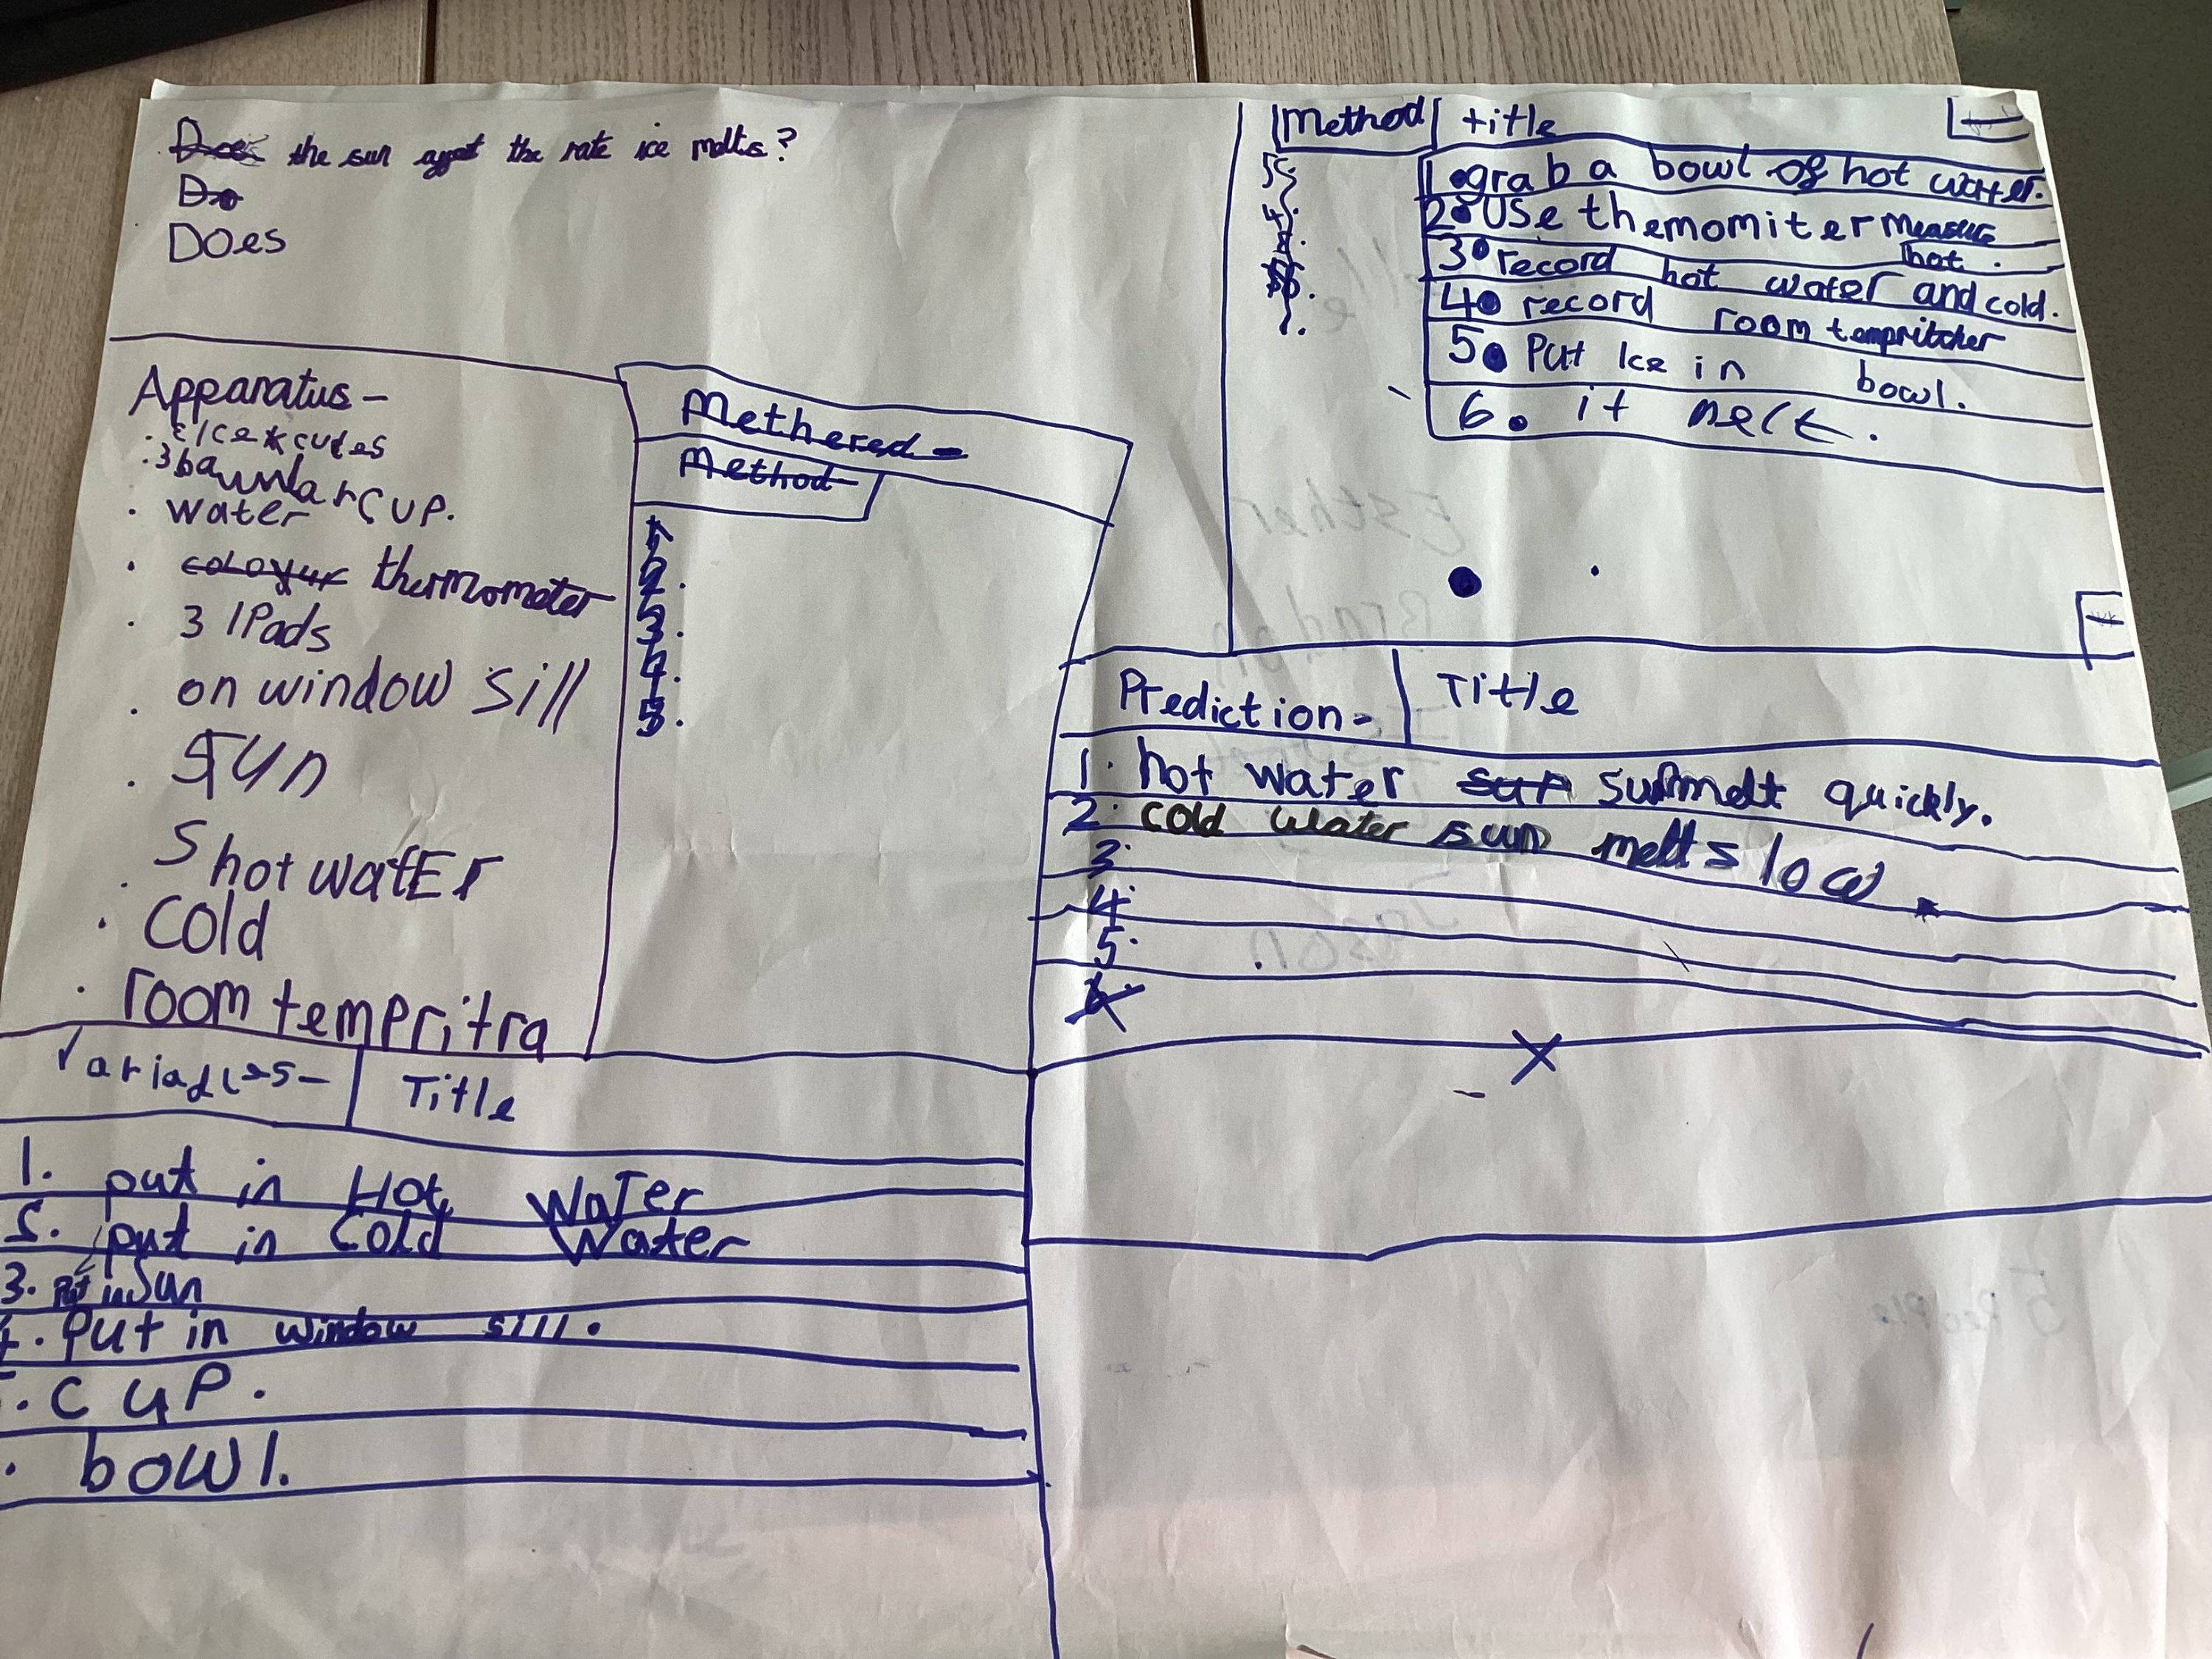 Does the sun affect the rate ice melts?
Do
Does
Apparatus-
cudes
.3
cup.
. water
. thermometer
. 3 IPads
. on window sill
. Sun
. S hot watEr
. Cold
. room tempritra
Methered-
Method-
1
2.
3.
4.
5.
Method title
1. grab a bowl of hot water.
2. Use themomiter measure
hot.
3. record hot water and cold.
4. record room tempritcher
5. Put Ice in bowl.
6. it melt.
Prediction- Title
1. hot water sun sun melt quickly.
2. cold water sun melt slow.
3.
4.
5.
6.
Variables- Title
1. put in Hot Water
2. put in Cold Water
3. Put in Sun
4. Put in window sill.
. cup.
. bowl.
Esther
Jason.
5 People